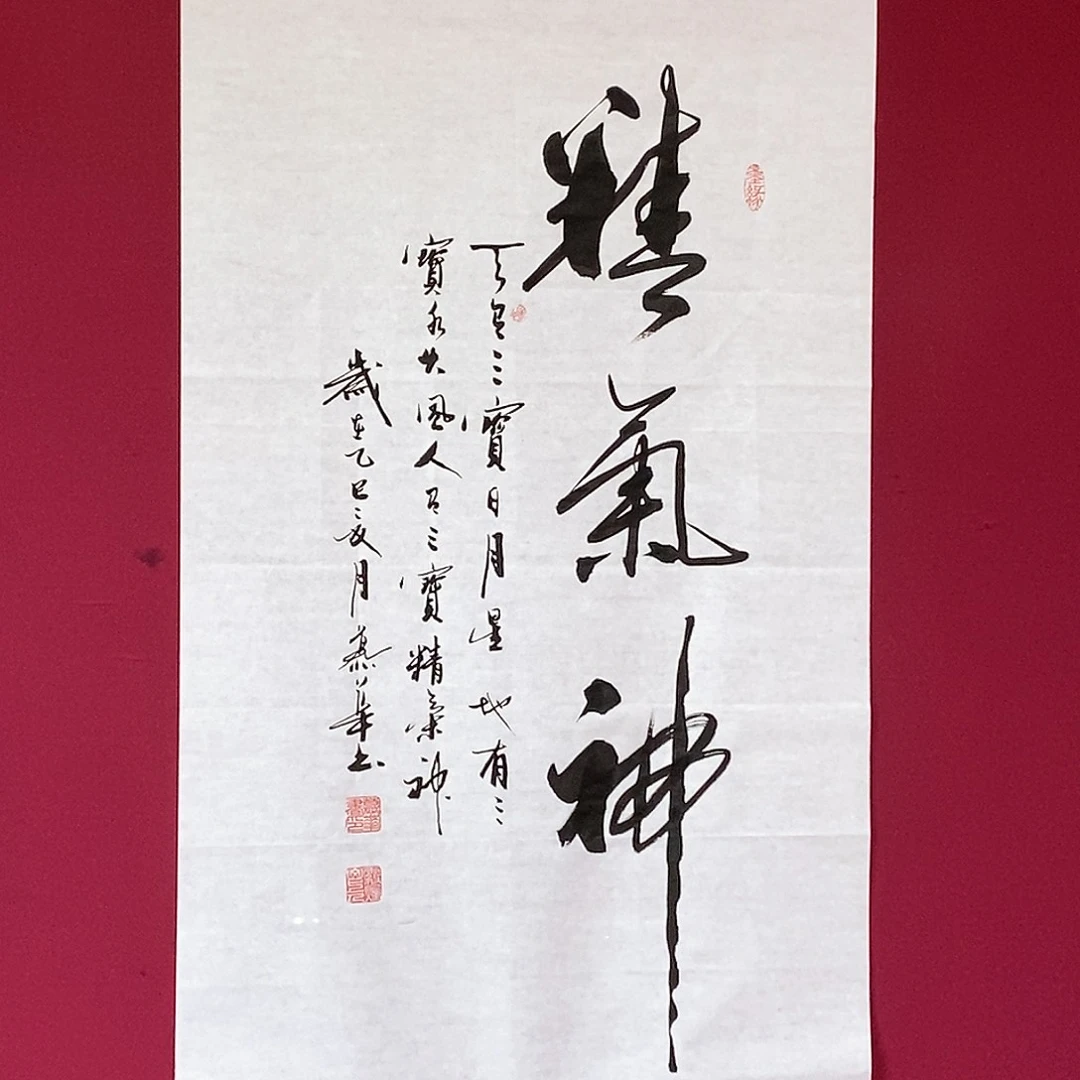 精氣神
天有三寶日月星地有三
寶水火風人有三寶精氣神
歲在乙巳亥月慕華書